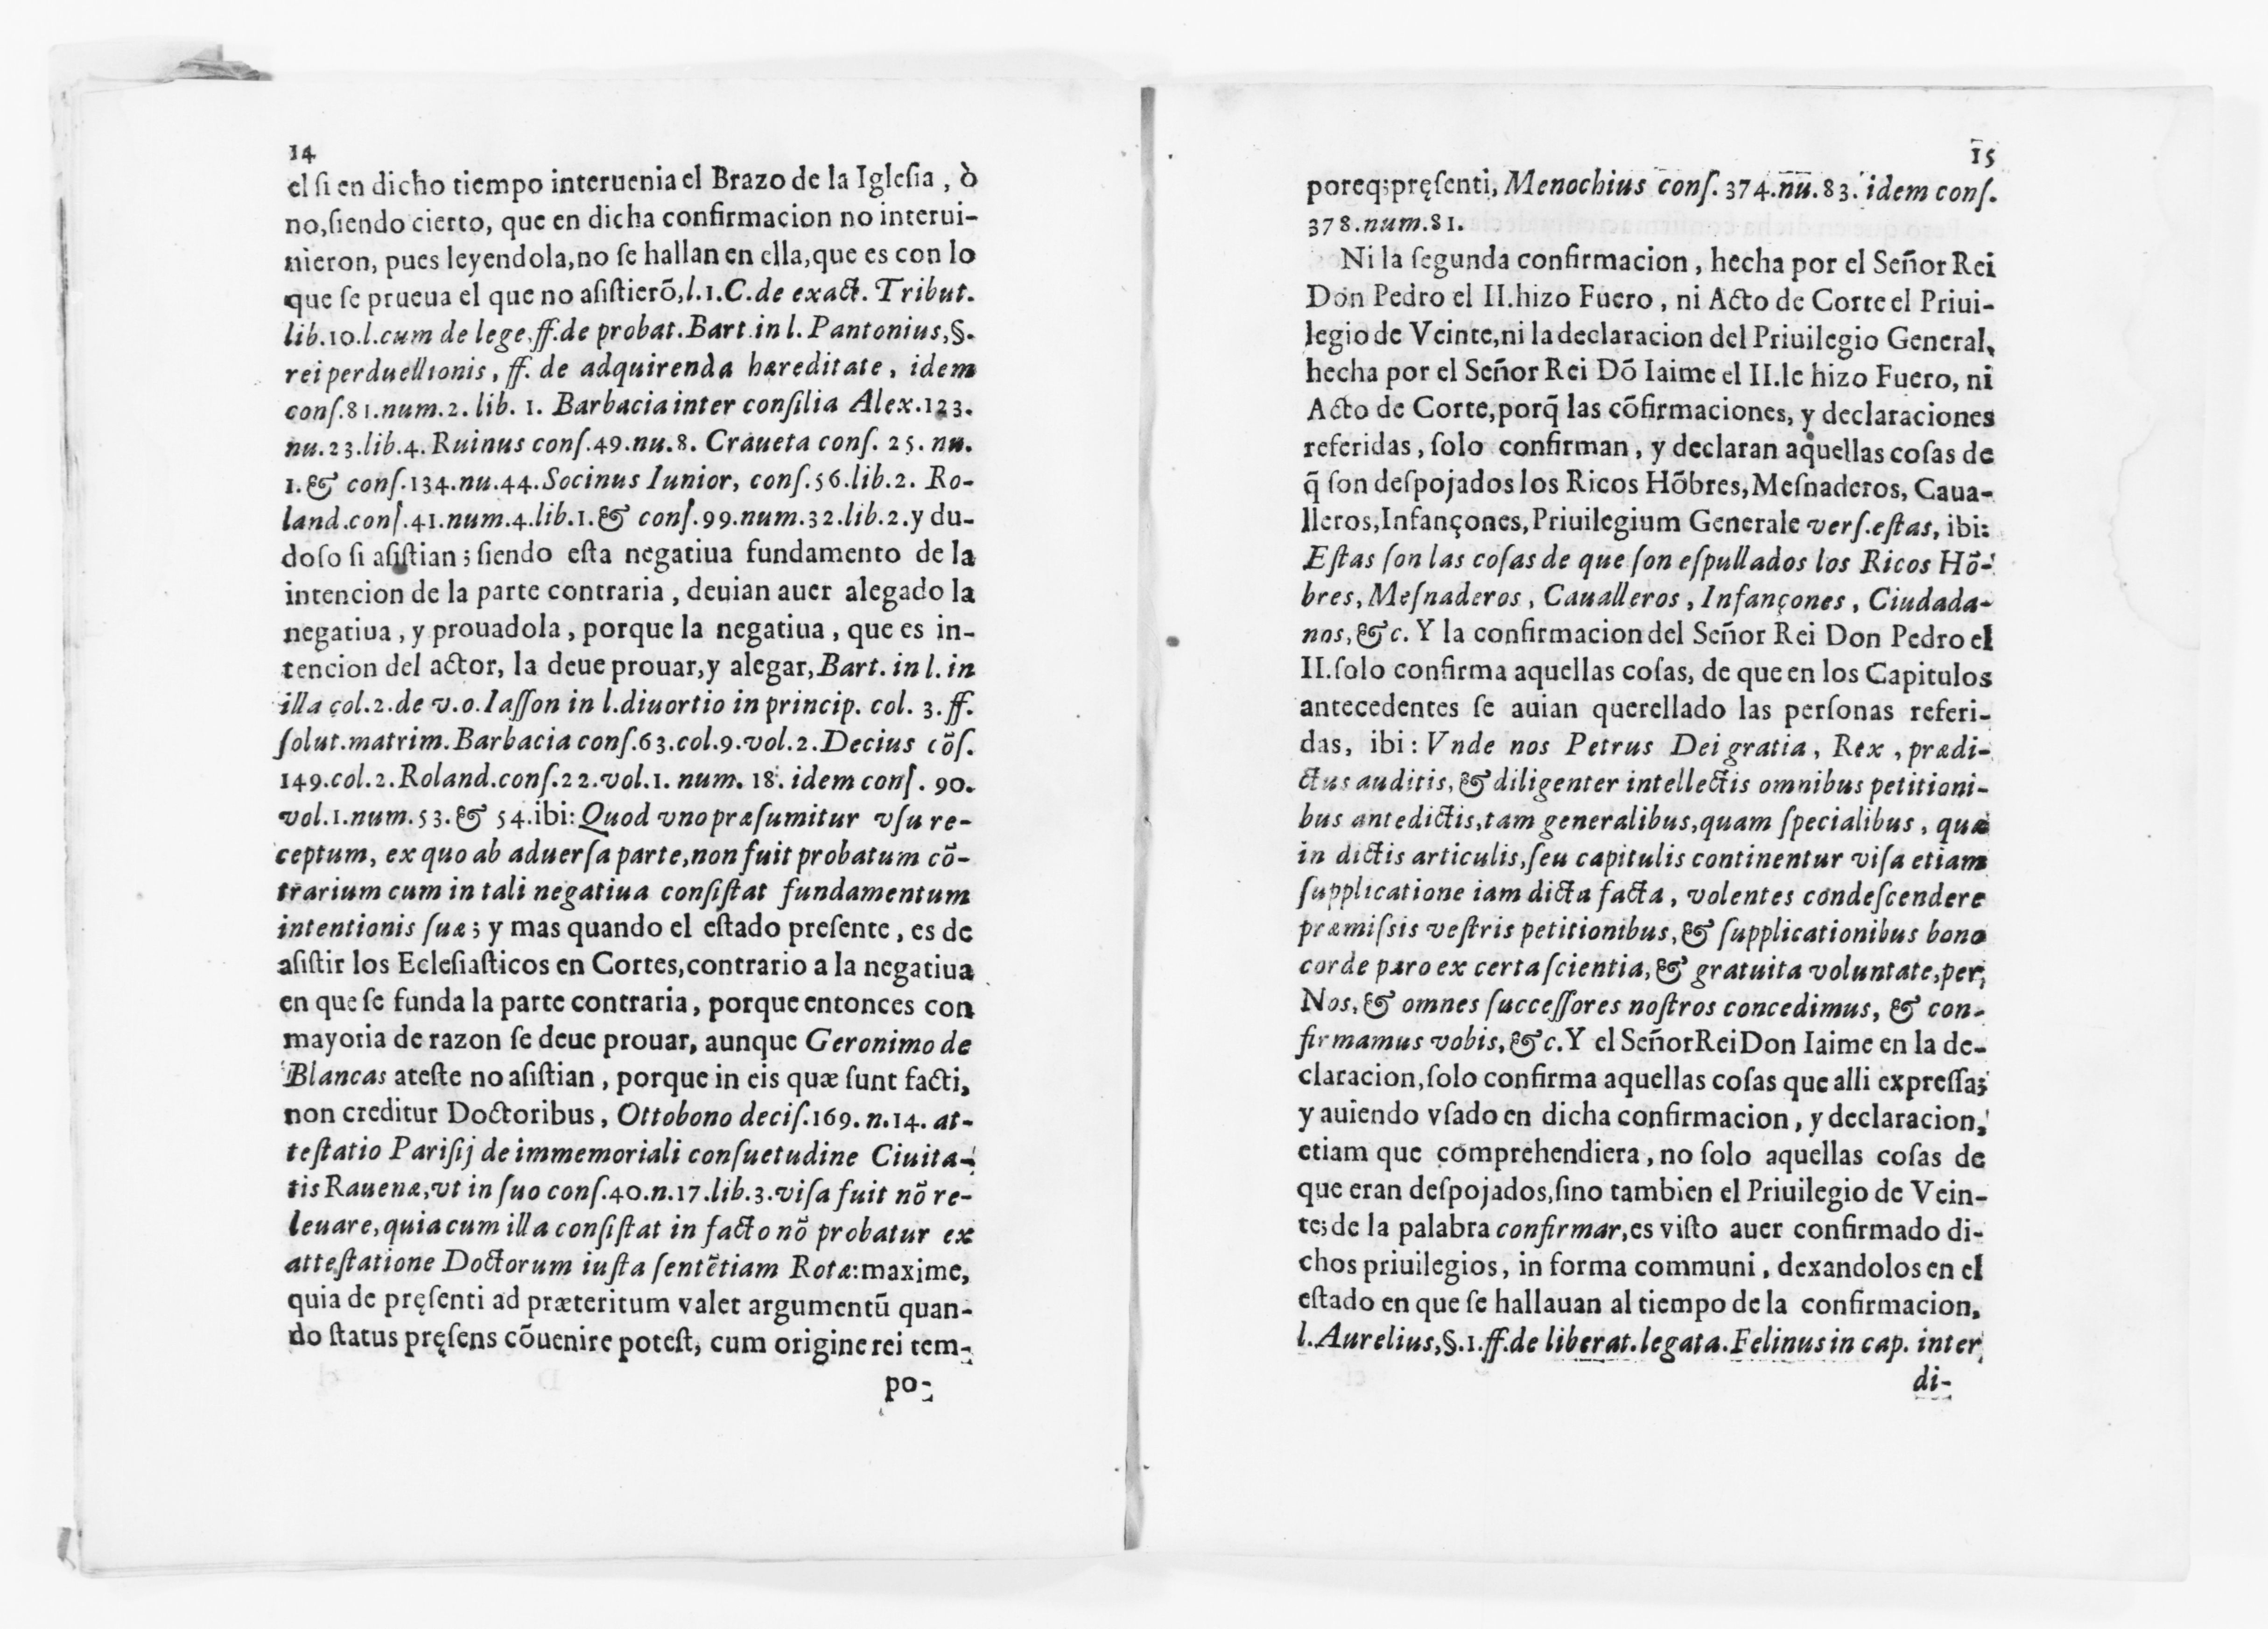 14
el ſi en dicho tiempo interuenia el Brazo de la Igleſia, ò
no, ſiendo cierto, que en dicha confirmacion no interui-
nieron, pues leyendola, no ſe hallan en ella, que es con lo
que ſe prueua el que no aſiſtierõ, l.1.C.de exact. Tribut.
lib.10.l.cum de lege, ff.de probat.Bart.in l. Pantonius,§.
rei perduellionis, ff. de adquirenda hæreditate, idem
conſ.81.num.2. lib. 1. Barbacia inter conſilia Alex.123.
nu.23.lib.4. Ruinus conſ.49.nu.8. Craueta conſ. 25. nu.
1.& conſ.134.nu.44.Socinus Iunior, conſ.56.lib.2. Ro-
land.conſ.41.num.4.lib.1.& conſ.99.num.32.lib.2.y du-
doſo ſi aſiſtian; ſiendo eſta negatiua fundamento de la
intencion de la parte contraria, deuian auer alegado la
negatiua, y prouadola, porque la negatiua, que es in-
tencion del actor, la deue prouar, y alegar, Bart. in l. in
illa col.2.de v.o.Iaſſon in l.diuortio in princip. col. 3. ff.
ſolut.matrim.Barbacia conſ.63.col.9.vol.2.Decius cõſ.
149.col.2.Roland.conſ.22.vol.1. num. 18. idem conſ. 90.
vol.1.num.53.& 54.ibi: Quod vno præſumitur vſu re-
ceptum, ex quo ab aduerſa parte, non fuit probatum cõ-
trarium cum in tali negatiua conſiſtat fundamentum
intentionis ſuæ; y mas quando el eſtado preſente, es de
aſiſtir los Ecleſiaſticos en Cortes, contrario a la negatiua
en que ſe funda la parte contraria, porque entonces con
mayoria de razon ſe deue prouar, aunque Geronimo de
Blancas ateſte no aſiſtian, porque in eis quæ ſunt facti,
non creditur Doctoribus, Ottobono deciſ.169. n.14. at-
teſtatio Pariſij de immemoriali conſuetudine Ciuita-
tis Rauenæ, vt in ſuo conſ.40.n.17.lib.3.viſa fuit nõ re-
leuare, quia cum illa conſiſtat in facto nõ probatur ex
atteſtatione Doctorum iuſta ſentẽtiam Rotæ: maxime,
quia de pręſenti ad præteritum valet argumentũ quan-
do ſtatus pręſens cõuenire poteſt, cum origine rei tem-
po-
15
poreq; pręſenti, Menochius conſ. 374.nu.83. idem conſ.
378.num.81.
Ni la ſegunda confirmacion, hecha por el Señor Rei
Don Pedro el II. hizo Fuero, ni Acto de Corte el Priui-
legio de Veinte, ni la declaracion del Priuilegio General,
hecha por el Señor Rei Dõ Iaime el II. le hizo Fuero, ni
Acto de Corte, porq̃ las cõfirmaciones, y declaraciones
referidas, ſolo confirman, y declaran aquellas coſas de
q̃ ſon deſpojados los Ricos Hõbres, Meſnaderos, Caua-
lleros, Infançones, Priuilegium Generale verſ.eſtas, ibi:
Eſtas ſon las coſas de que ſon eſpullados los Ricos Hõ-
bres, Meſnaderos, Caualleros, Infançones, Ciudada-
nos, &c. Y la confirmacion del Señor Rei Don Pedro el
II. ſolo confirma aquellas coſas, de que en los Capitulos
antecedentes ſe auian querellado las perſonas referi-
das, ibi: Vnde nos Petrus Dei gratia, Rex, prædi-
ctus auditis, & diligenter intellectis omnibus petitioni-
bus antedictis, tam generalibus, quam ſpecialibus, quæ
in dictis articulis, ſeu capitulis continentur viſa etiam
ſupplicatione iam dicta facta, volentes condeſcendere
præmiſsis veſtris petitionibus, & ſupplicationibus bono
corde puro ex certa ſcientia, & gratuita voluntate, per
Nos, & omnes ſucceſſores noſtros concedimus, & con-
firmamus vobis, &c. Y el Señor Rei Don Iaime en la de-
claracion, ſolo confirma aquellas coſas que alli expreſſa;
y auiendo vſado en dicha confirmacion, y declaracion,
etiam que comprehendiera, no ſolo aquellas coſas de
que eran deſpojados, ſino tambien el Priuilegio de Vein-
te; de la palabra confirmar, es viſto auer confirmado di-
chos priuilegios, in forma communi, dexandolos en el
eſtado en que ſe hallauan al tiempo de la confirmacion,
l.Aurelius,§.1.ff.de liberat.legata.Felinus in cap. inter
di-